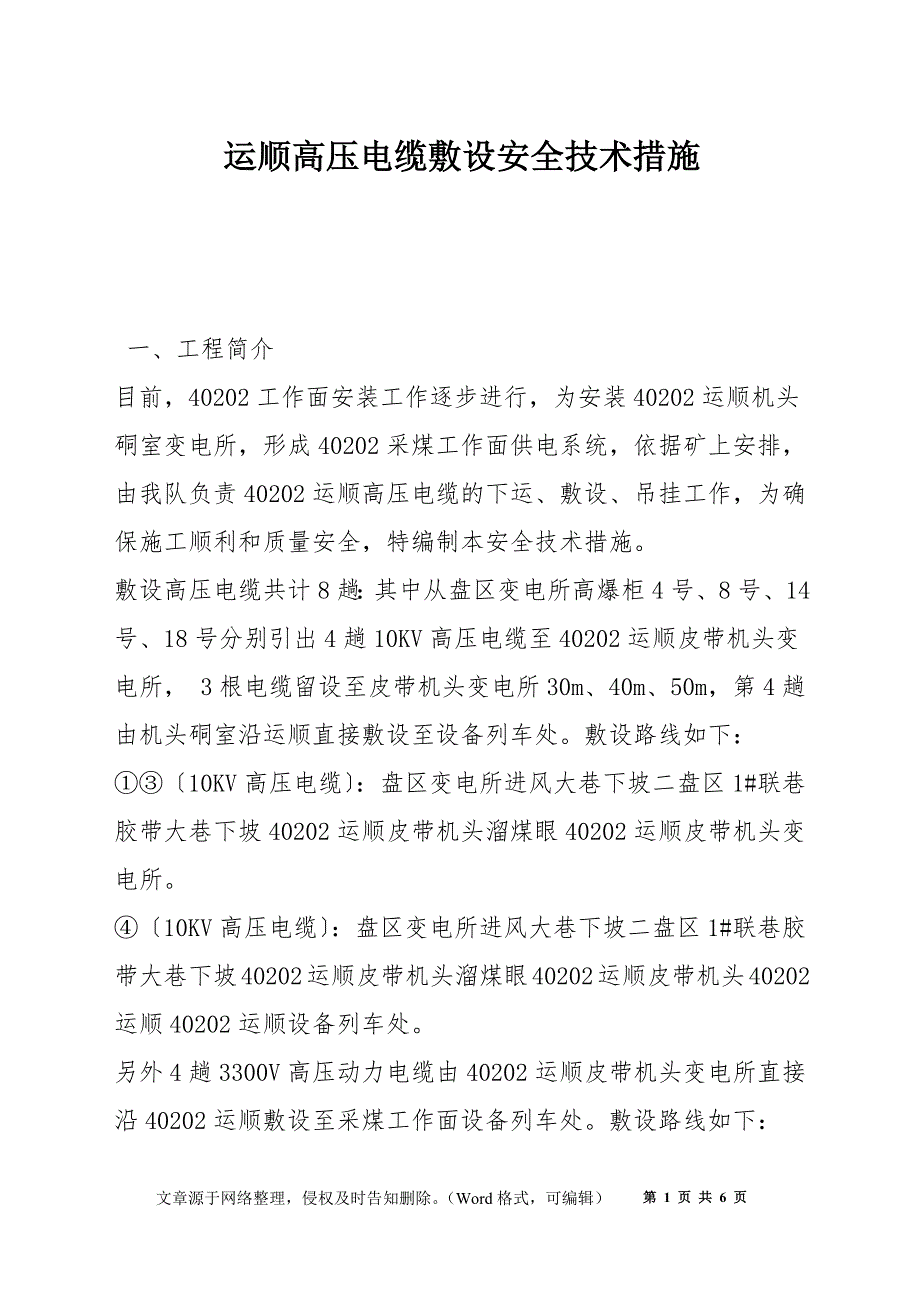 运顺高压电缆敷设安全技术措施
一、工程简介
目前，40202工作面安装工作逐步进行，为安装40202运顺机头
硐室变电所，形成40202采煤工作面供电系统，依据矿上安排，
由我队负责40202运顺高压电缆的下运、敷设、吊挂工作，为确
保施工顺利和质量安全，特编制本安全技术措施。
敷设高压电缆共计8趟：其中从盘区变电所高爆柜4号、8号、14
号、18号分别引出4趟10KV高压电缆至40202运顺皮带机头变
电所， 3根电缆留设至皮带机头变电所30m、40m、50m，第4趟
由机头硐室沿运顺直接敷设至设备列车处。敷设路线如下：
①③〔10KV高压电缆〕：盘区变电所进风大巷下坡二盘区1#联巷
胶带大巷下坡40202运顺皮带机头溜煤眼40202运顺皮带机头变
电所。
④〔10KV高压电缆〕：盘区变电所进风大巷下坡二盘区1#联巷胶
带大巷下坡40202运顺皮带机头溜煤眼40202运顺皮带机头40202
运顺40202运顺设备列车处。
另外4趟3300V高压动力电缆由40202运顺皮带机头变电所直接
沿40202运顺敷设至采煤工作面设备列车处。敷设路线如下：
文章源于网络整理，侵权及时告知删除。（Word格式，可编辑） 第 1 页 共 6 页